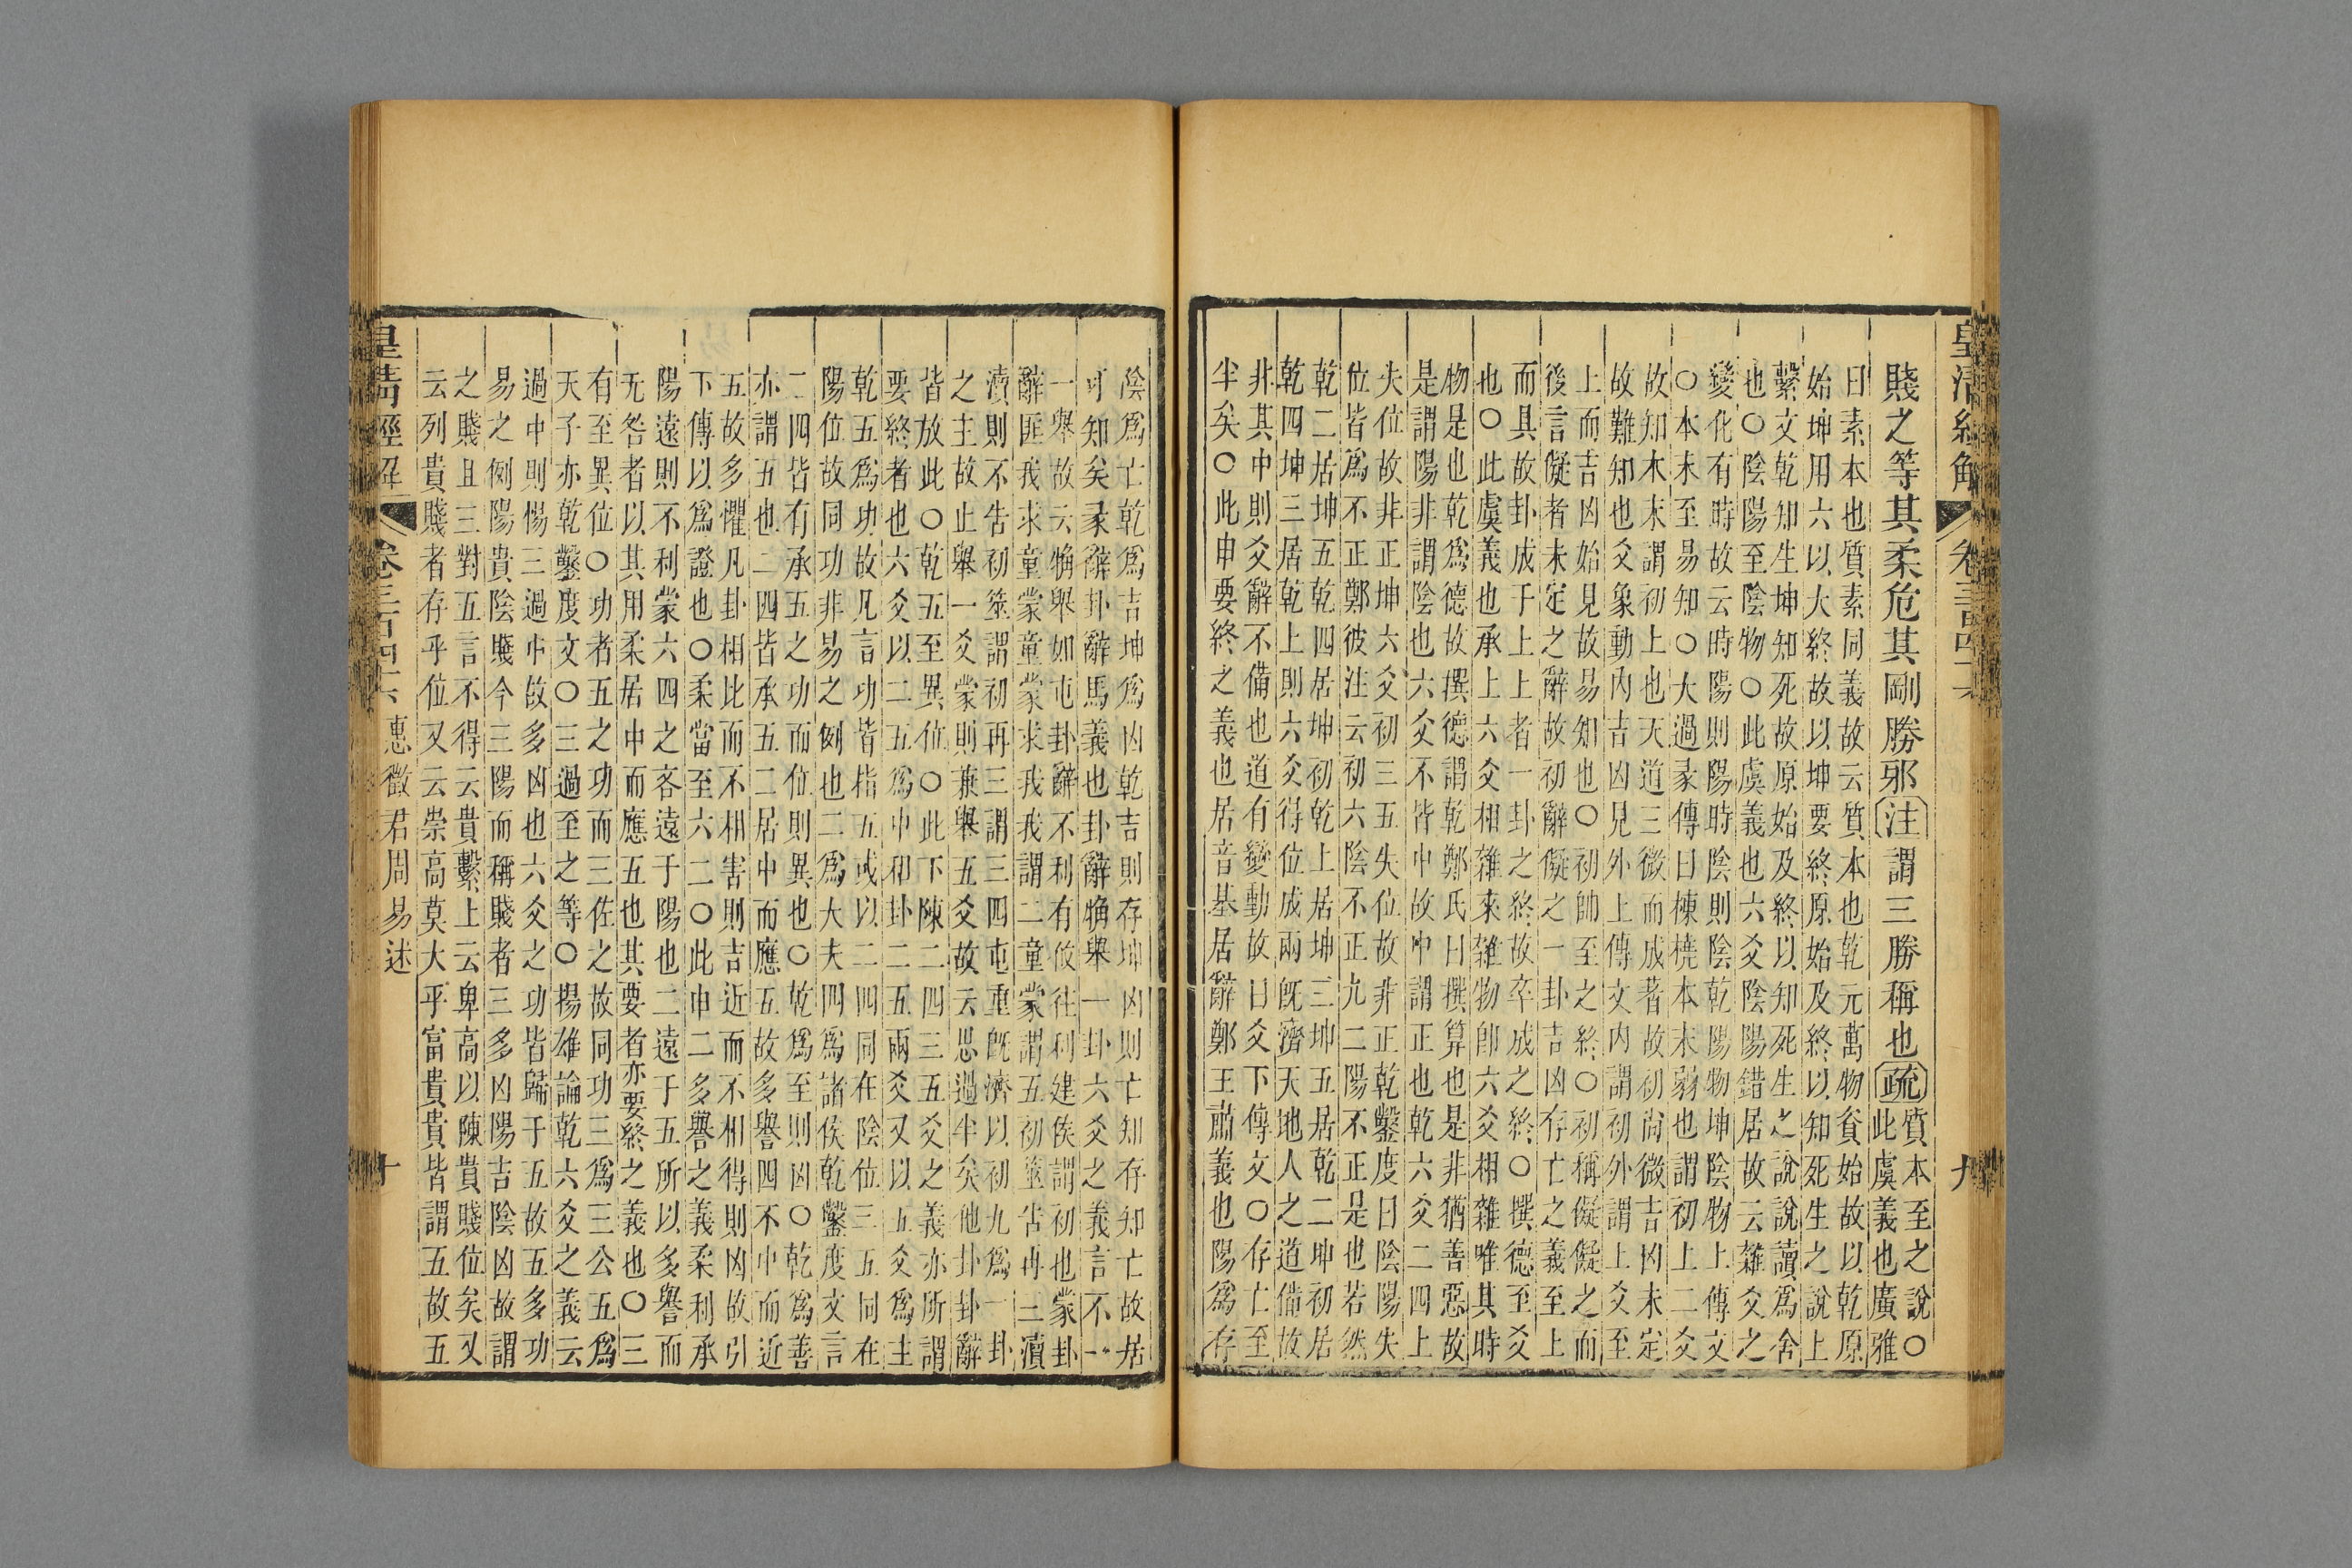 皇清經解
卷三百四十六
九
賤之等其柔危其剛勝邪注謂三勝稱也疏質本至之說〇
此虞義也廣雅
曰素本也質素同義故云質本也乾元萬物資始故以乾原
始坤用六以大終故以坤要終原始及終以知死生之說上
繫文乾知生坤知死故原始及終以知死生之說說讀爲舍
也〇陰陽至陰物〇此虞義也六爻陰陽錯居故云雜爻之
變化有時故云時陽則陽時陰則陰乾陽物坤陰物上傳文
〇本末至易知〇大過彖傳曰棟橈本末弱也謂初上二爻
故知本末謂初上也天道三微而成著故初尚微吉凶未定
故難知也爻象動內吉凶見外上傳文內謂初外謂上上爻至
上而吉凶始見故易知也〇初帥至之終〇初稱儗儗之而
後言儗者未定之辭故初辭儗之一卦吉凶存亡之義至上
而具故卦成于上上者一卦之終故卒成之終〇撰德至爻
也〇此虞義也承上六爻相雜來雜物卽六爻相雜唯其時
物是也乾爲德故撰德謂乾鄭氏曰撰算也是非猶善惡故
是謂陽非謂陰也六爻不皆中故中謂正也乾六爻二四上
失位故非正坤六爻初三五失位故非正乾鑿度曰陰陽失
位皆爲不正鄭彼注云初六陰不正九二陽不正是也若然
乾二居坤五乾四居坤初乾上居坤三坤五居乾二坤初居
乾四坤三居乾上則六爻得位成兩旣濟天地人之道備故
非其中則爻辭不備也道有變動故曰爻下傳文〇存亡至
半矣〇此申要終之義也居音基居辭鄭王肅義也陽爲存
陰爲亡乾爲吉坤爲凶乾吉則存坤凶則亡知存知亡故居
可知矣彖辭卦辭馬義也卦辭犕舉一卦六爻之義言不一
一舉故云犕舉如屯卦辭不利有攸往利建侯謂初也蒙卦
辭匪我求童蒙童蒙求我我謂二童蒙謂五初筮告再三瀆
瀆則不告初筮謂初再三謂三四屯重旣濟以初九爲一卦
之主故止舉一爻蒙則兼舉五爻故云思過半矣他卦卦辭
皆放此〇乾五至異位〇此下陳二四三五爻之義亦所謂
要終者也六爻以二五爲中和卦二五兩爻又以五爻爲主
乾五爲功故凡言功皆指五或以二四同在陰位三五同在
陽位故同功非易之例也二爲大夫四爲諸侯乾鑿度文言
二四皆有承五之功而位則異也〇乾爲至則凶〇乾爲善
亦謂五也二四皆承五二居中而應五故多譽四不中而近
五故多懼凡卦相比而不相害則吉近而不相得則凶故引
下傳以爲證也〇柔當至六二〇此申二多譽之義柔利承
陽遠則不利蒙六四之吝遠于陽也二遠于五所以多譽而
无咎者以其用柔居中而應五也其要者亦要終之義也〇三
有至異位〇功者五之功而三佐之故同功三爲三公五爲
天子亦乾鑿度文〇三過至之等〇揚雄論乾六爻之義云
過中則惕三過中故多凶也六爻之功皆歸于五故五多功
易之例陽貴陰賤今三陽而稱賤者三多凶陽吉陰凶故謂
之賤且三對五言不得云貴繫上云卑高以陳貴賤位矣又
云列貴賤者存乎位又云崇高莫大乎富貴貴皆謂五故五
皇清經解
卷三百四十六
惠徵君周易述
十